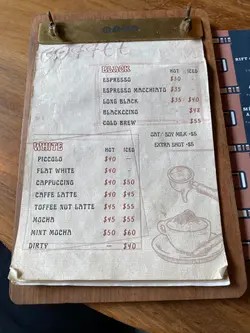 COFFEE
BLACK HOT ICED
ESPRESSO $30 -
ESPRESSO MACCHIATO $35
LONG BLACK $35 $40
BLACKCCINO $45
COLD BREW $55
OAT/ SOY MILK +$5
EXTRA SHOT +$5
WHITE HOT ICED
PICCOLO $40 -
FLAT WHITE $40 -
CAPPUCCINO $40 $50
CAFFE LATTE $40 $45
TOFFEE NUT LATTE $45 $55
MOCHA $45 $55
MINT MOCHA $50 $60
DIRTY - $40